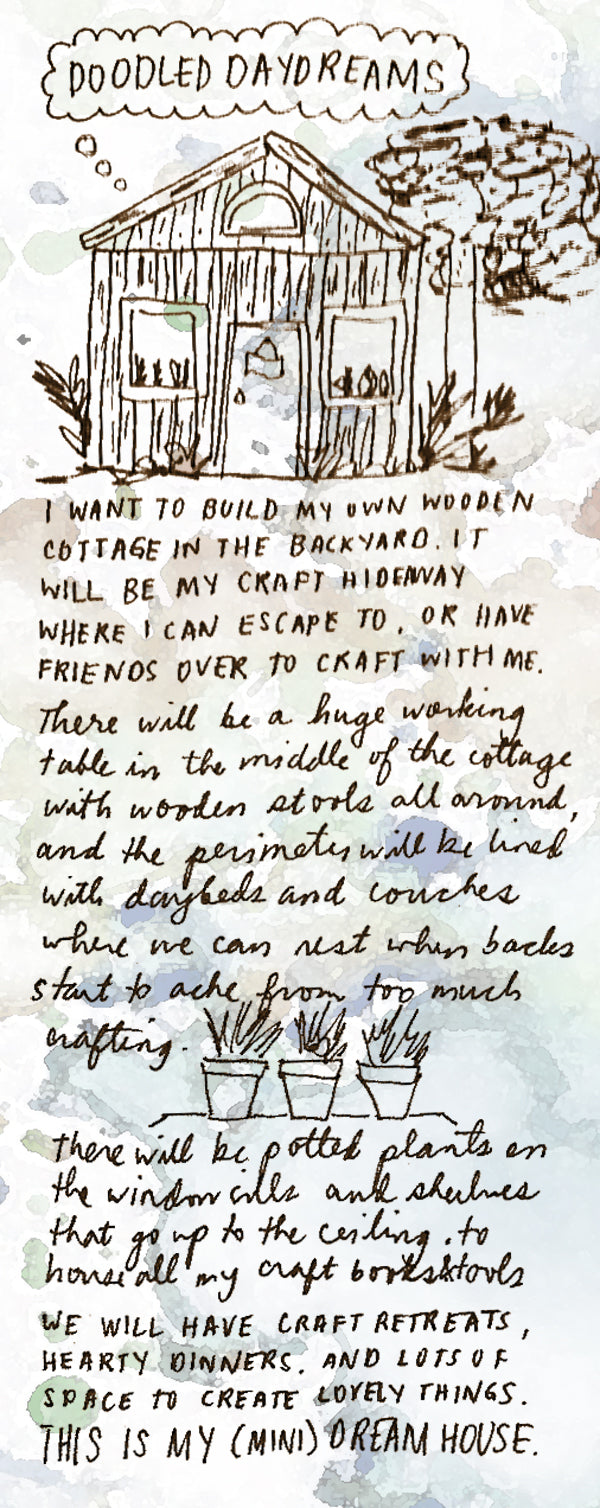 DOODLED DAYDREAMS
I WANT TO BUILD MY OWN WOODEN
COTTAGE IN THE BACKYARD. IT
WILL BE MY CRAFT HIDEAWAY
WHERE I CAN ESCAPE TO, OR HAVE
FRIENDS OVER TO CRAFT WITH ME.
There will be a huge working
table in the middle of the cottage
with wooden stools all around,
and the perimeters will be lined
with daybeds and couches
where we can rest when backs
start to ache from too much
crafting.
there will be potted plants on
the window sills and shelves
that go up to the ceiling. to
house all my craft books & tools
WE WILL HAVE CRAFT RETREATS,
HEARTY DINNERS. AND LOTS OF
SPACE TO CREATE LOVELY THINGS.
THIS IS MY (MINI) DREAM HOUSE.